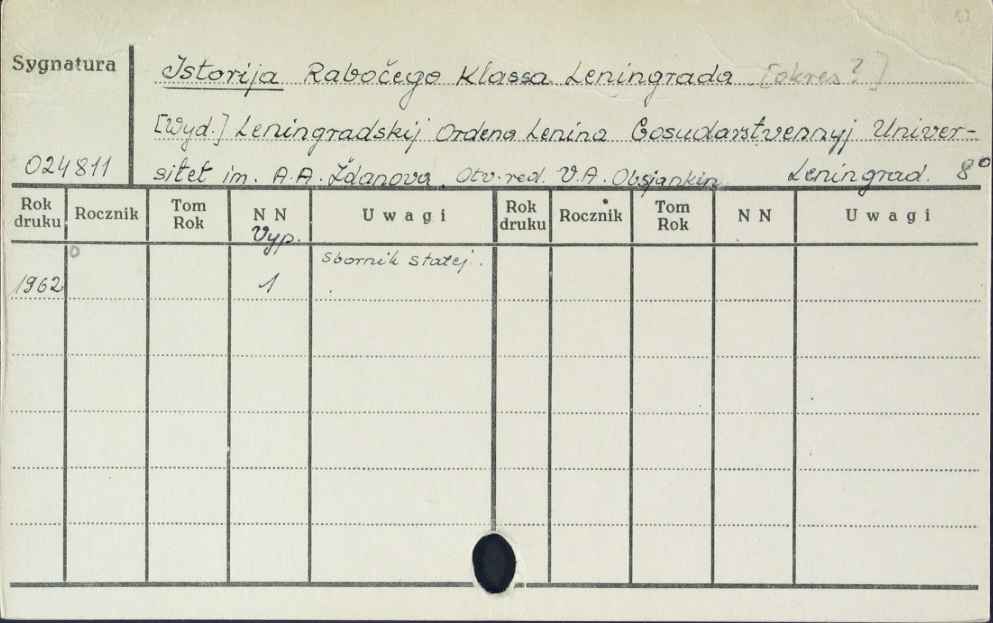 Sygnatura
Istorija Rabočego Klassa Leningrada [okres?]
[Wyd.] Leningradskij Ordena Lenina Gosudarstvennyj Univer-
024811 sitet im. A.A. Ždanova. Otv. red. V.A. Obsjankin. Leningrad. 8°
Rok druku Rocznik Tom Rok N N Uwagi Rok druku Rocznik Tom Rok N N Uwagi
Vyp.
0 sbornik statej.
1962 1